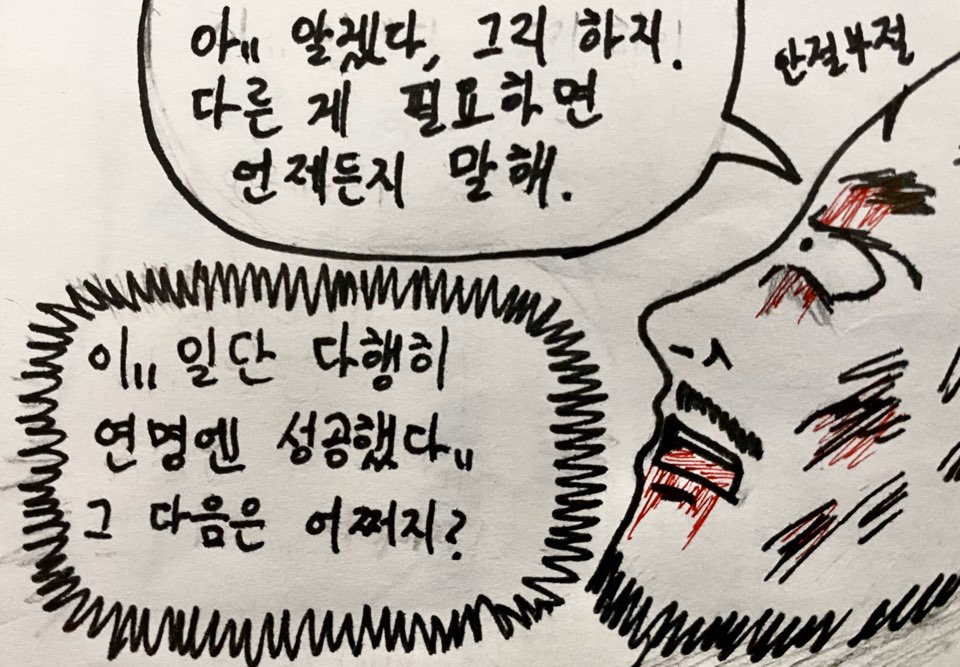 아,, 알겠다, 그리 하지.
다른 게 필요하면
언제든지 말해.
안절부절
이,, 일단 다행히
연명엔 성공했다,,
그 다음은 어쩌지?